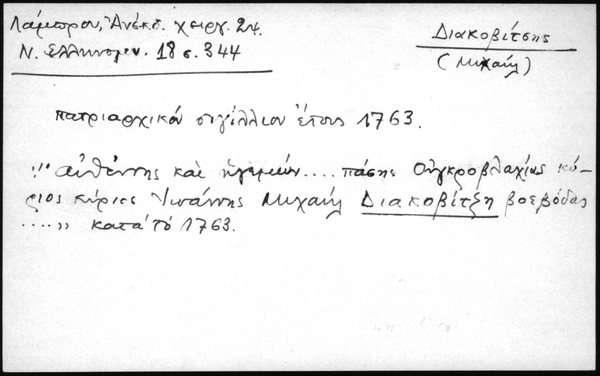 Λάμπρου, Ἀνέκδ. χειργ. 24.
Ν. Ἑλληνομν. 18 σ. 344
Διακοβίτσης
(Μιχαήλ)
πατριαρχικόν σιγίλλιον ἔτους 1763.
"αὐθέντης καὶ ἡγεμών.... πάσης Οὐγκροβλαχίας κύ-
ριος κύριος Ἰωάννης Μιχαήλ Διακοβίτζη βοεβόδας
....„ κατά τό 1763.